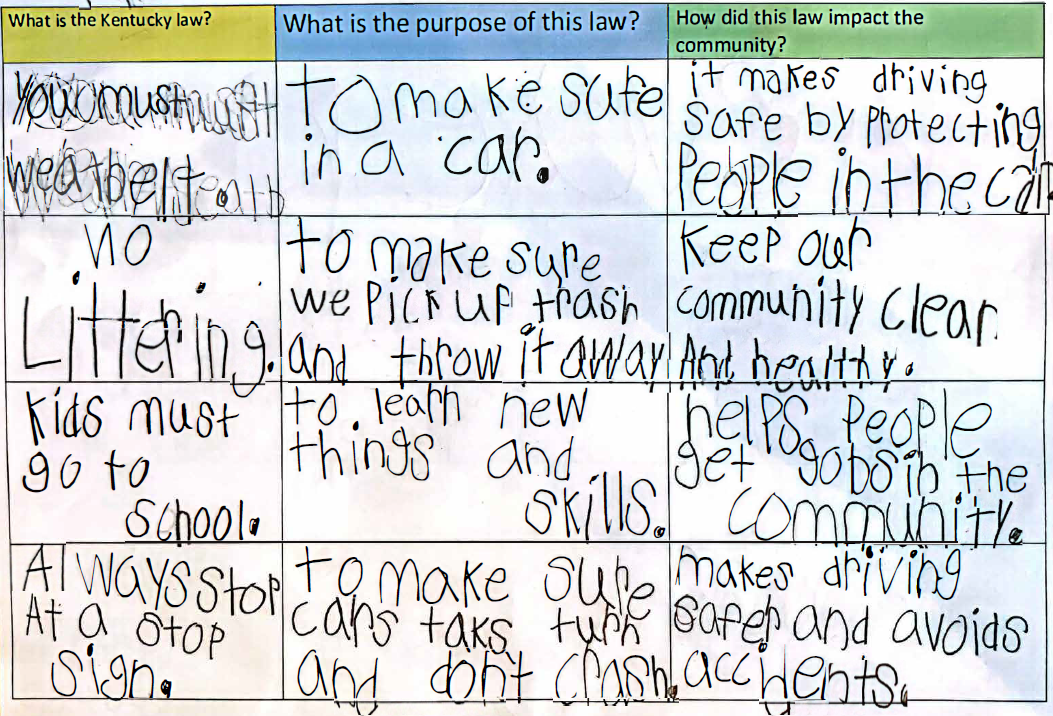 What is the Kentucky law?
What is the purpose of this law?
How did this law impact the
community?
You must
to make safe
in a car.
it makes driving
safe by Protecting
People in the car.
NO
Littering.
to make sure
we Pick up trash
and throw it away
Keep our
community clean
And healthy.
Kids must
go to
School.
to learn new
things and
skills.
helps People
get gobs in the
community.
Always stop
At a stop
sign.
to make sure
cars taks turn
and don't crash.
makes driving
safer and avoids
accidents.